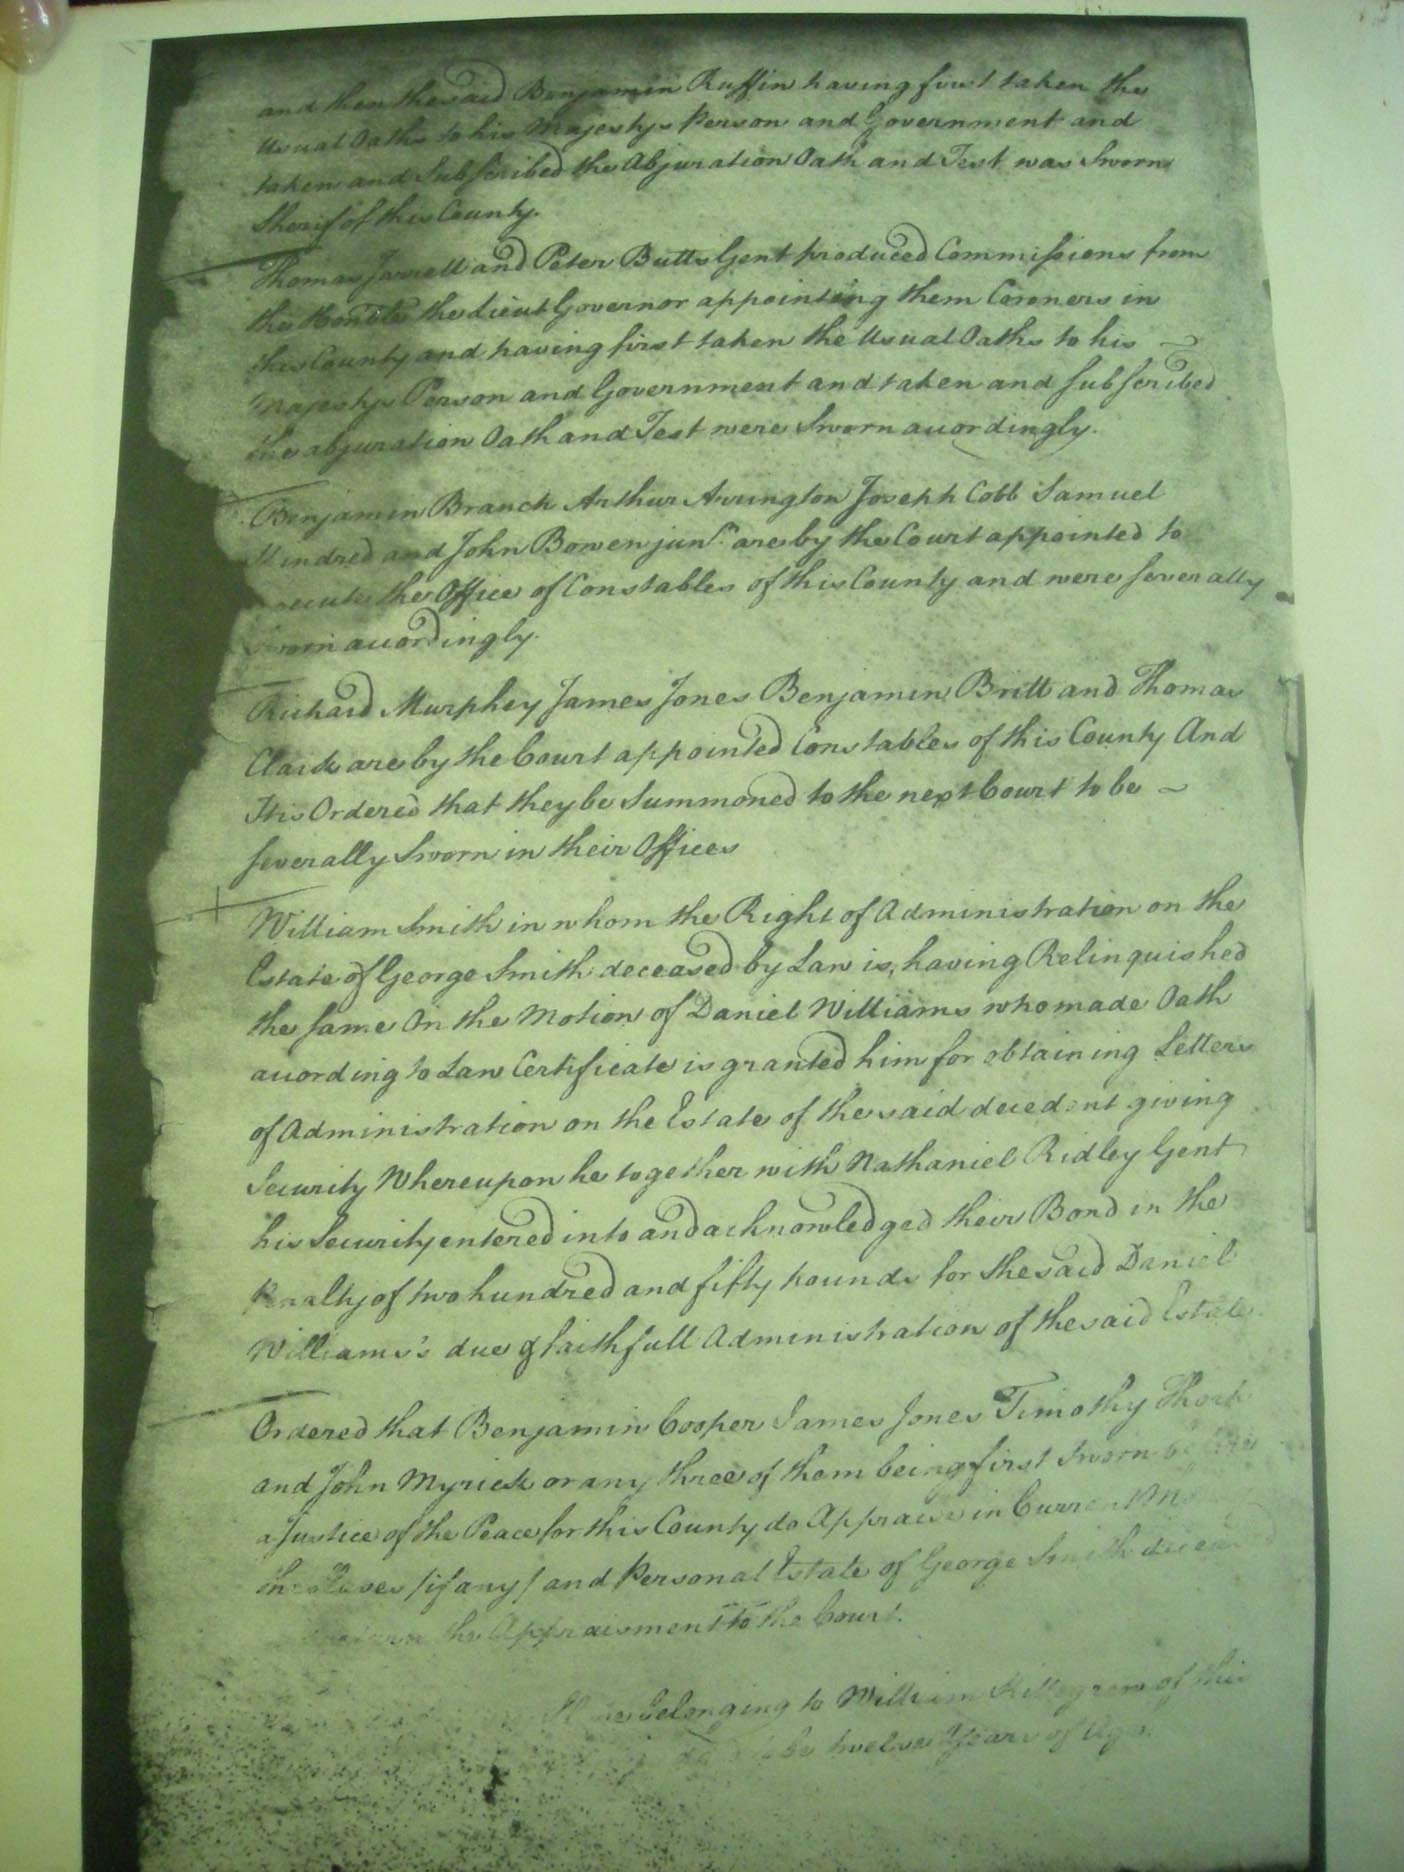 and then the said Benjamin Ruffin having first taken the
Usual Oaths to his Majestys Person and Government and
taken and Subscribed the Abjuration Oath and Test was Sworn
Sherif of this County.
Thomas Jarrell and Peter Butts Gent produced Commissions from
the Honble the Lieut Governor appointing them Coroners in
this County and having first taken the Usual Oaths to his
Majestys Person and Government and taken and Subscribed
the abjuration Oath and Test were Sworn accordingly.
Benjamin Branch Arthur Arrington Joseph Cobb Samuel
Kindred and John Bowen junr. are by the Court appointed to
the Office of Constables of this County and were severally
Sworn accordingly.
Richard Murphey James Jones Benjamin Britt and Thomas
Clark are by the Court appointed Constables of this County And
It is Ordered that they be Summoned to the next Court to be
severally Sworn in their Offices
William Smith in whom the Right of Administration on the
Estate of George Smith deceased by Law is, having Relinquished
the same On the Motion of Daniel Williams who made Oath
according to Law Certificate is granted him for obtaining Letters
of Administration on the Estate of the said decedent giving
Security Whereupon he together with Nathaniel Ridley Gent
his Security entered into and acknowledged their Bond in the
Penalty of two hundred and fifty pounds for the said Daniel
Williams's due & faithfull Administration of the said Estate
Ordered that Benjamin Cooper James Jones Timothy
and John Myrick or any three of them being first Sworn before
a Justice of the Peace for this County do Appraise in Current
the Slaves /if any/ and Personal Estate of George Smith
return the Appraisment to the Court.
belonging to William of this
to be twelve Years of Age.